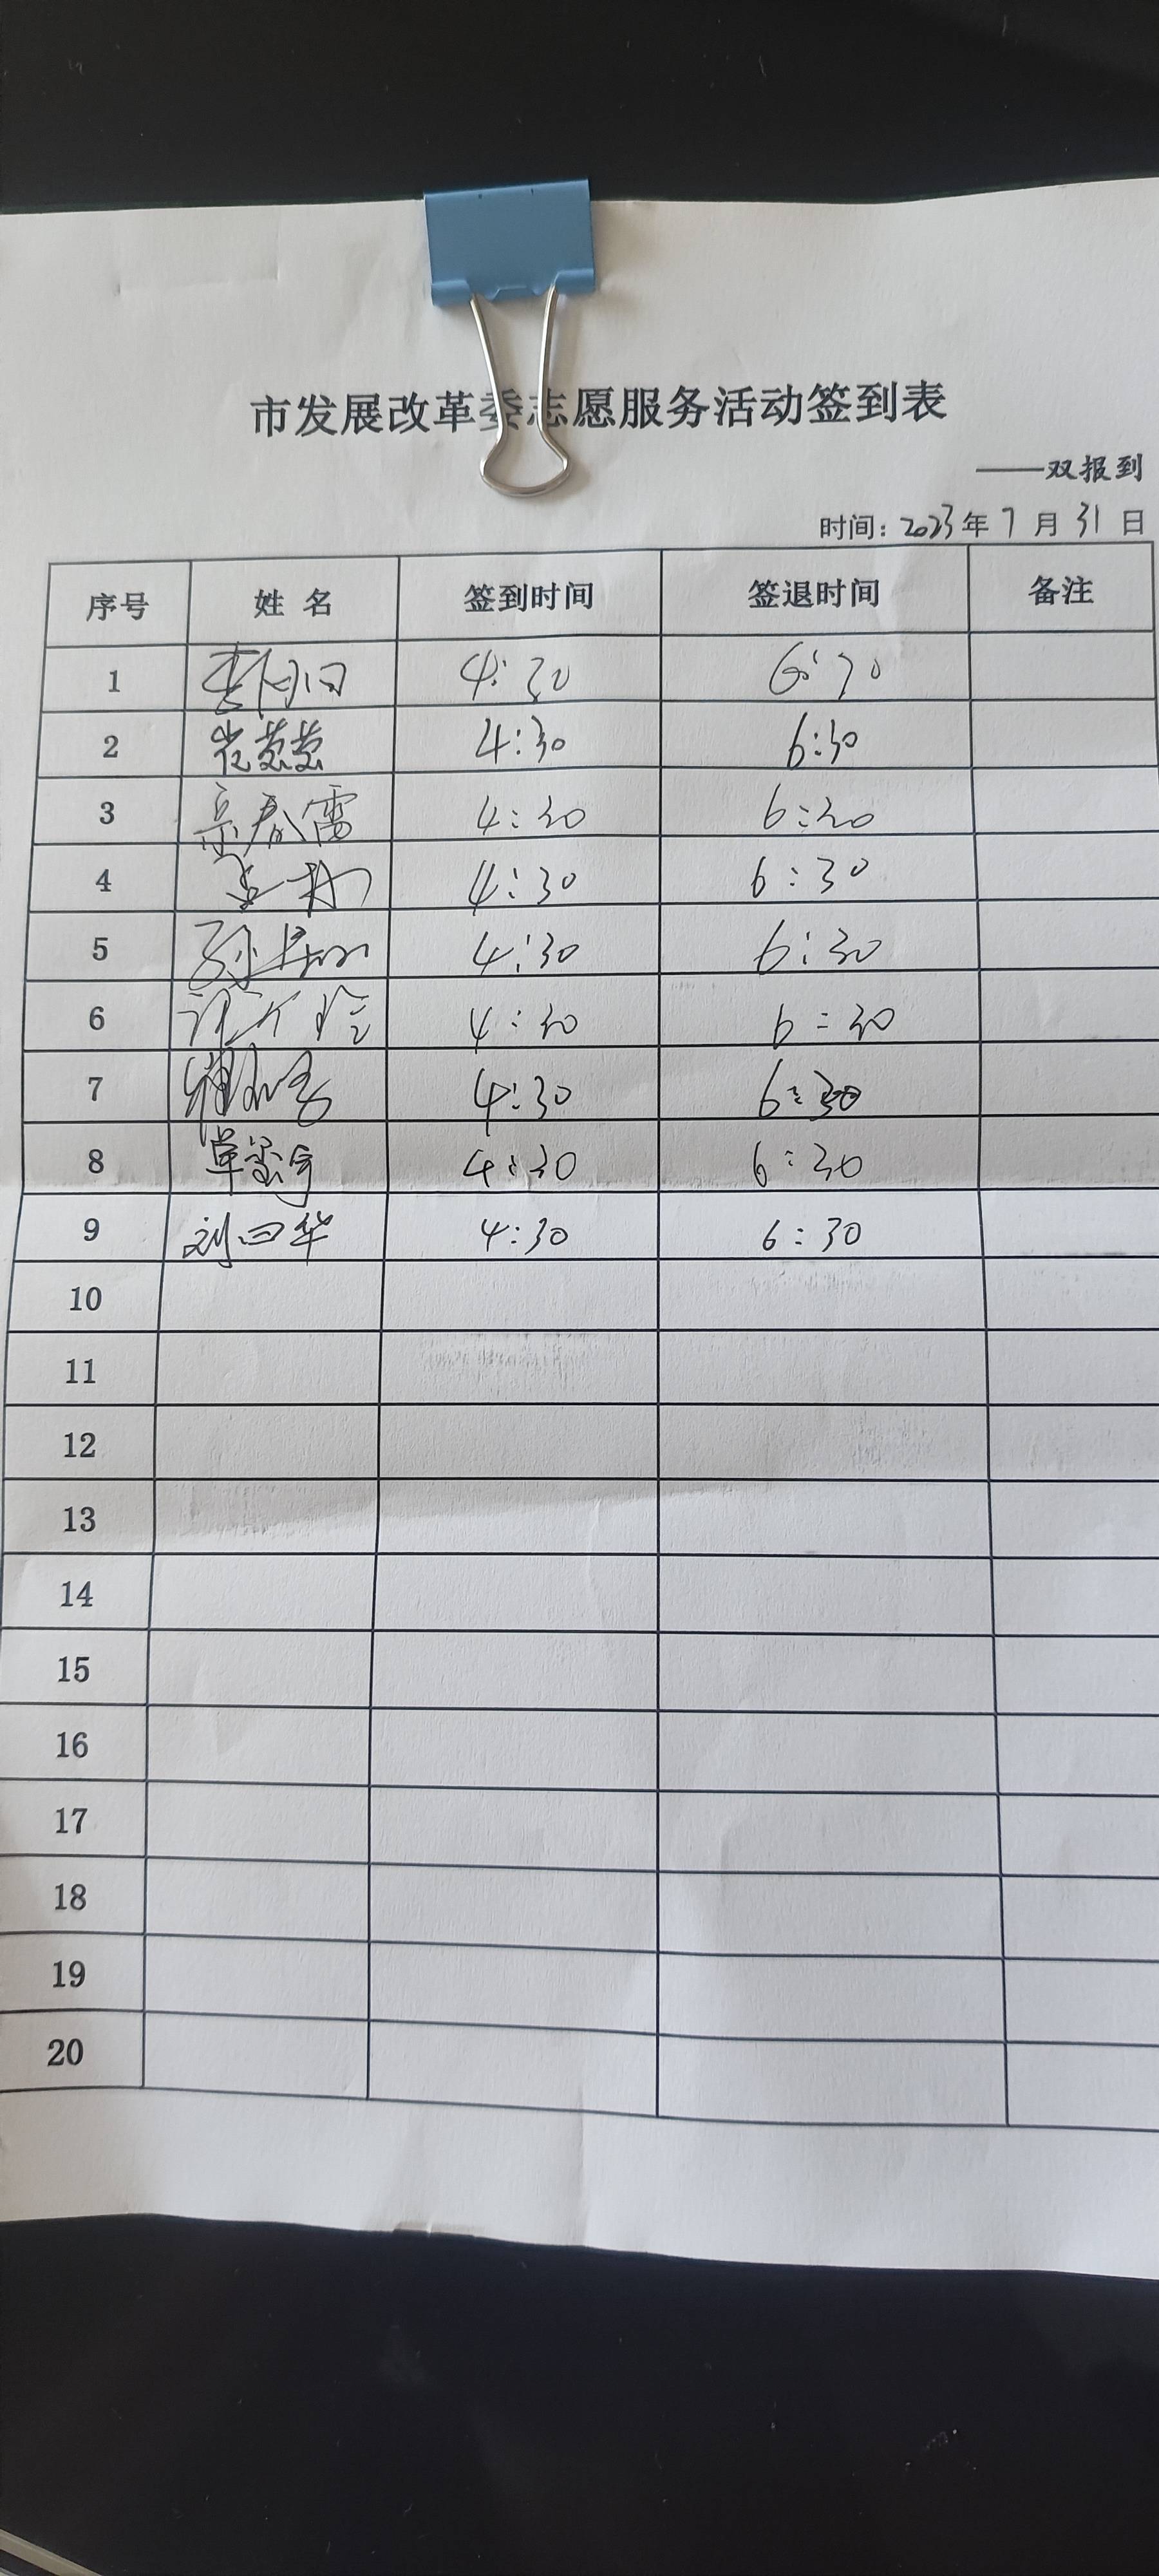 市发展改革委志愿服务活动签到表
——双报到
时间：2023年7月31日
序号 姓名 签到时间 签退时间 备注
1 4:30 6:30
2 4:30 6:30
3 4:30 6:30
4 4:30 6:30
5 4:30 6:30
6 4:30 6:30
7 4:30 6:30
8 4:30 6:30
9 刘四华 4:30 6:30
10
11
12
13
14
15
16
17
18
19
20